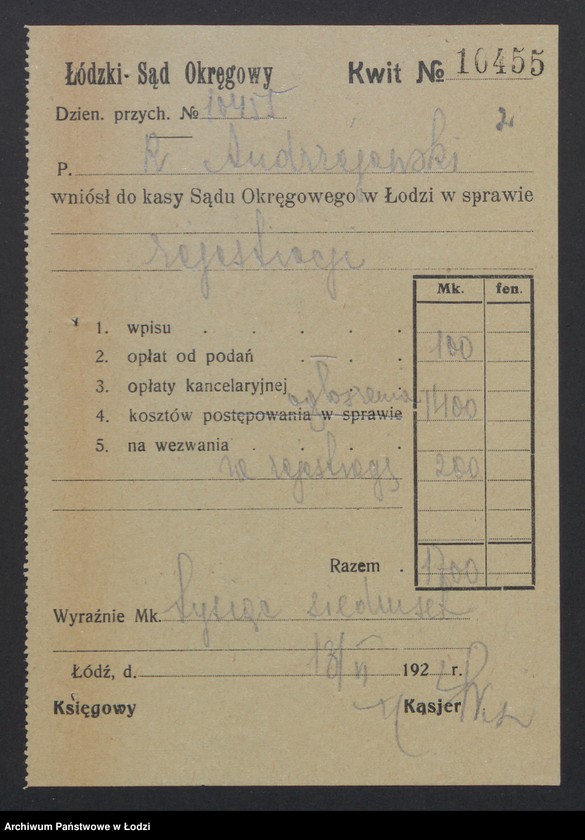 Łódzki- Sąd Okręgowy Kwit № 10455
Dzien. przych. № 10455
2
P. R Andrzejewski
wniósł do kasy Sądu Okręgowego w Łodzi w sprawie
rejestracji
Mk. fen.
1. wpisu . . . .
2. opłat od podań . . . 100
3. opłaty kancelaryjnej . .
ogłoszenia
4. kosztów postępowania w sprawie 1400
5. na wezwania . . . .
rejestracji 200
Razem . 1700
Wyraźnie Mk. tysiąc siedmset
Łódź, d. 13/VI 192 r.
Księgowy Kąsjer
Archiwum Państwowe w Łodzi